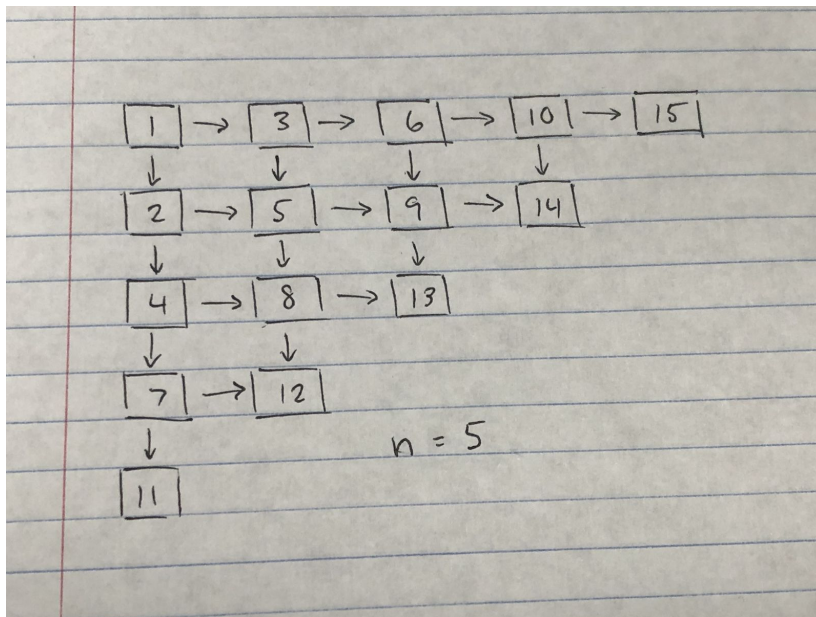 1 → 3 → 6 → 10 → 15
↓ ↓ ↓ ↓
2 → 5 → 9 → 14
↓ ↓ ↓
4 → 8 → 13
↓ ↓
7 → 12
n = 5
↓
11